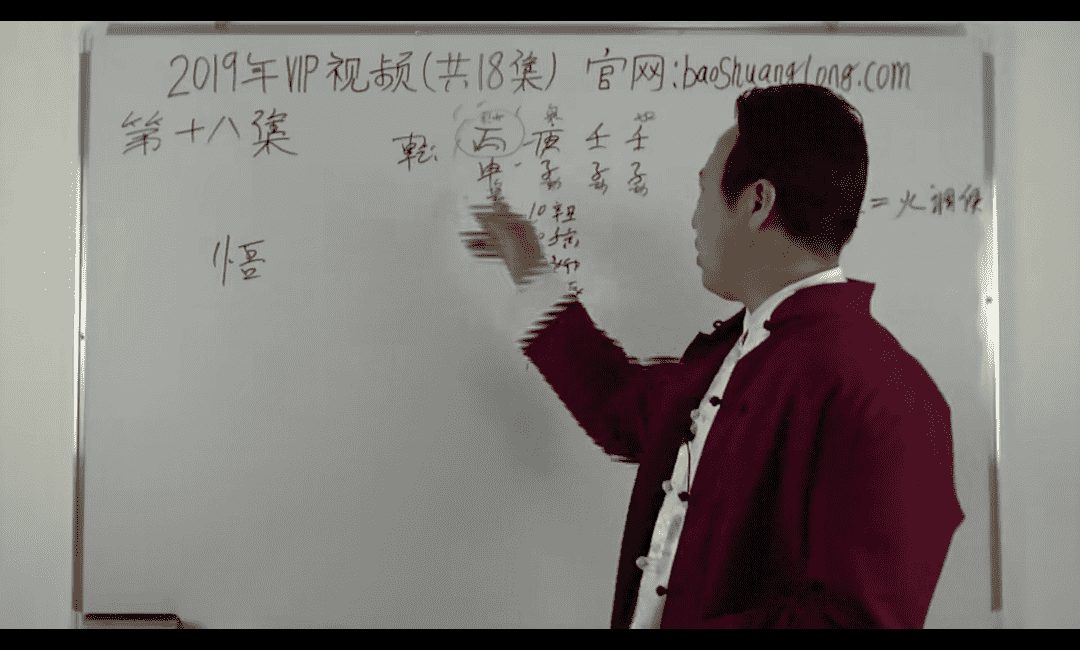 2019年VIP视频(共18集) 官网:baoshuanglong.com
第十八集
乾: 丙 庚 壬 壬
申 子 子 子
10 辛丑
= 火调候
悟